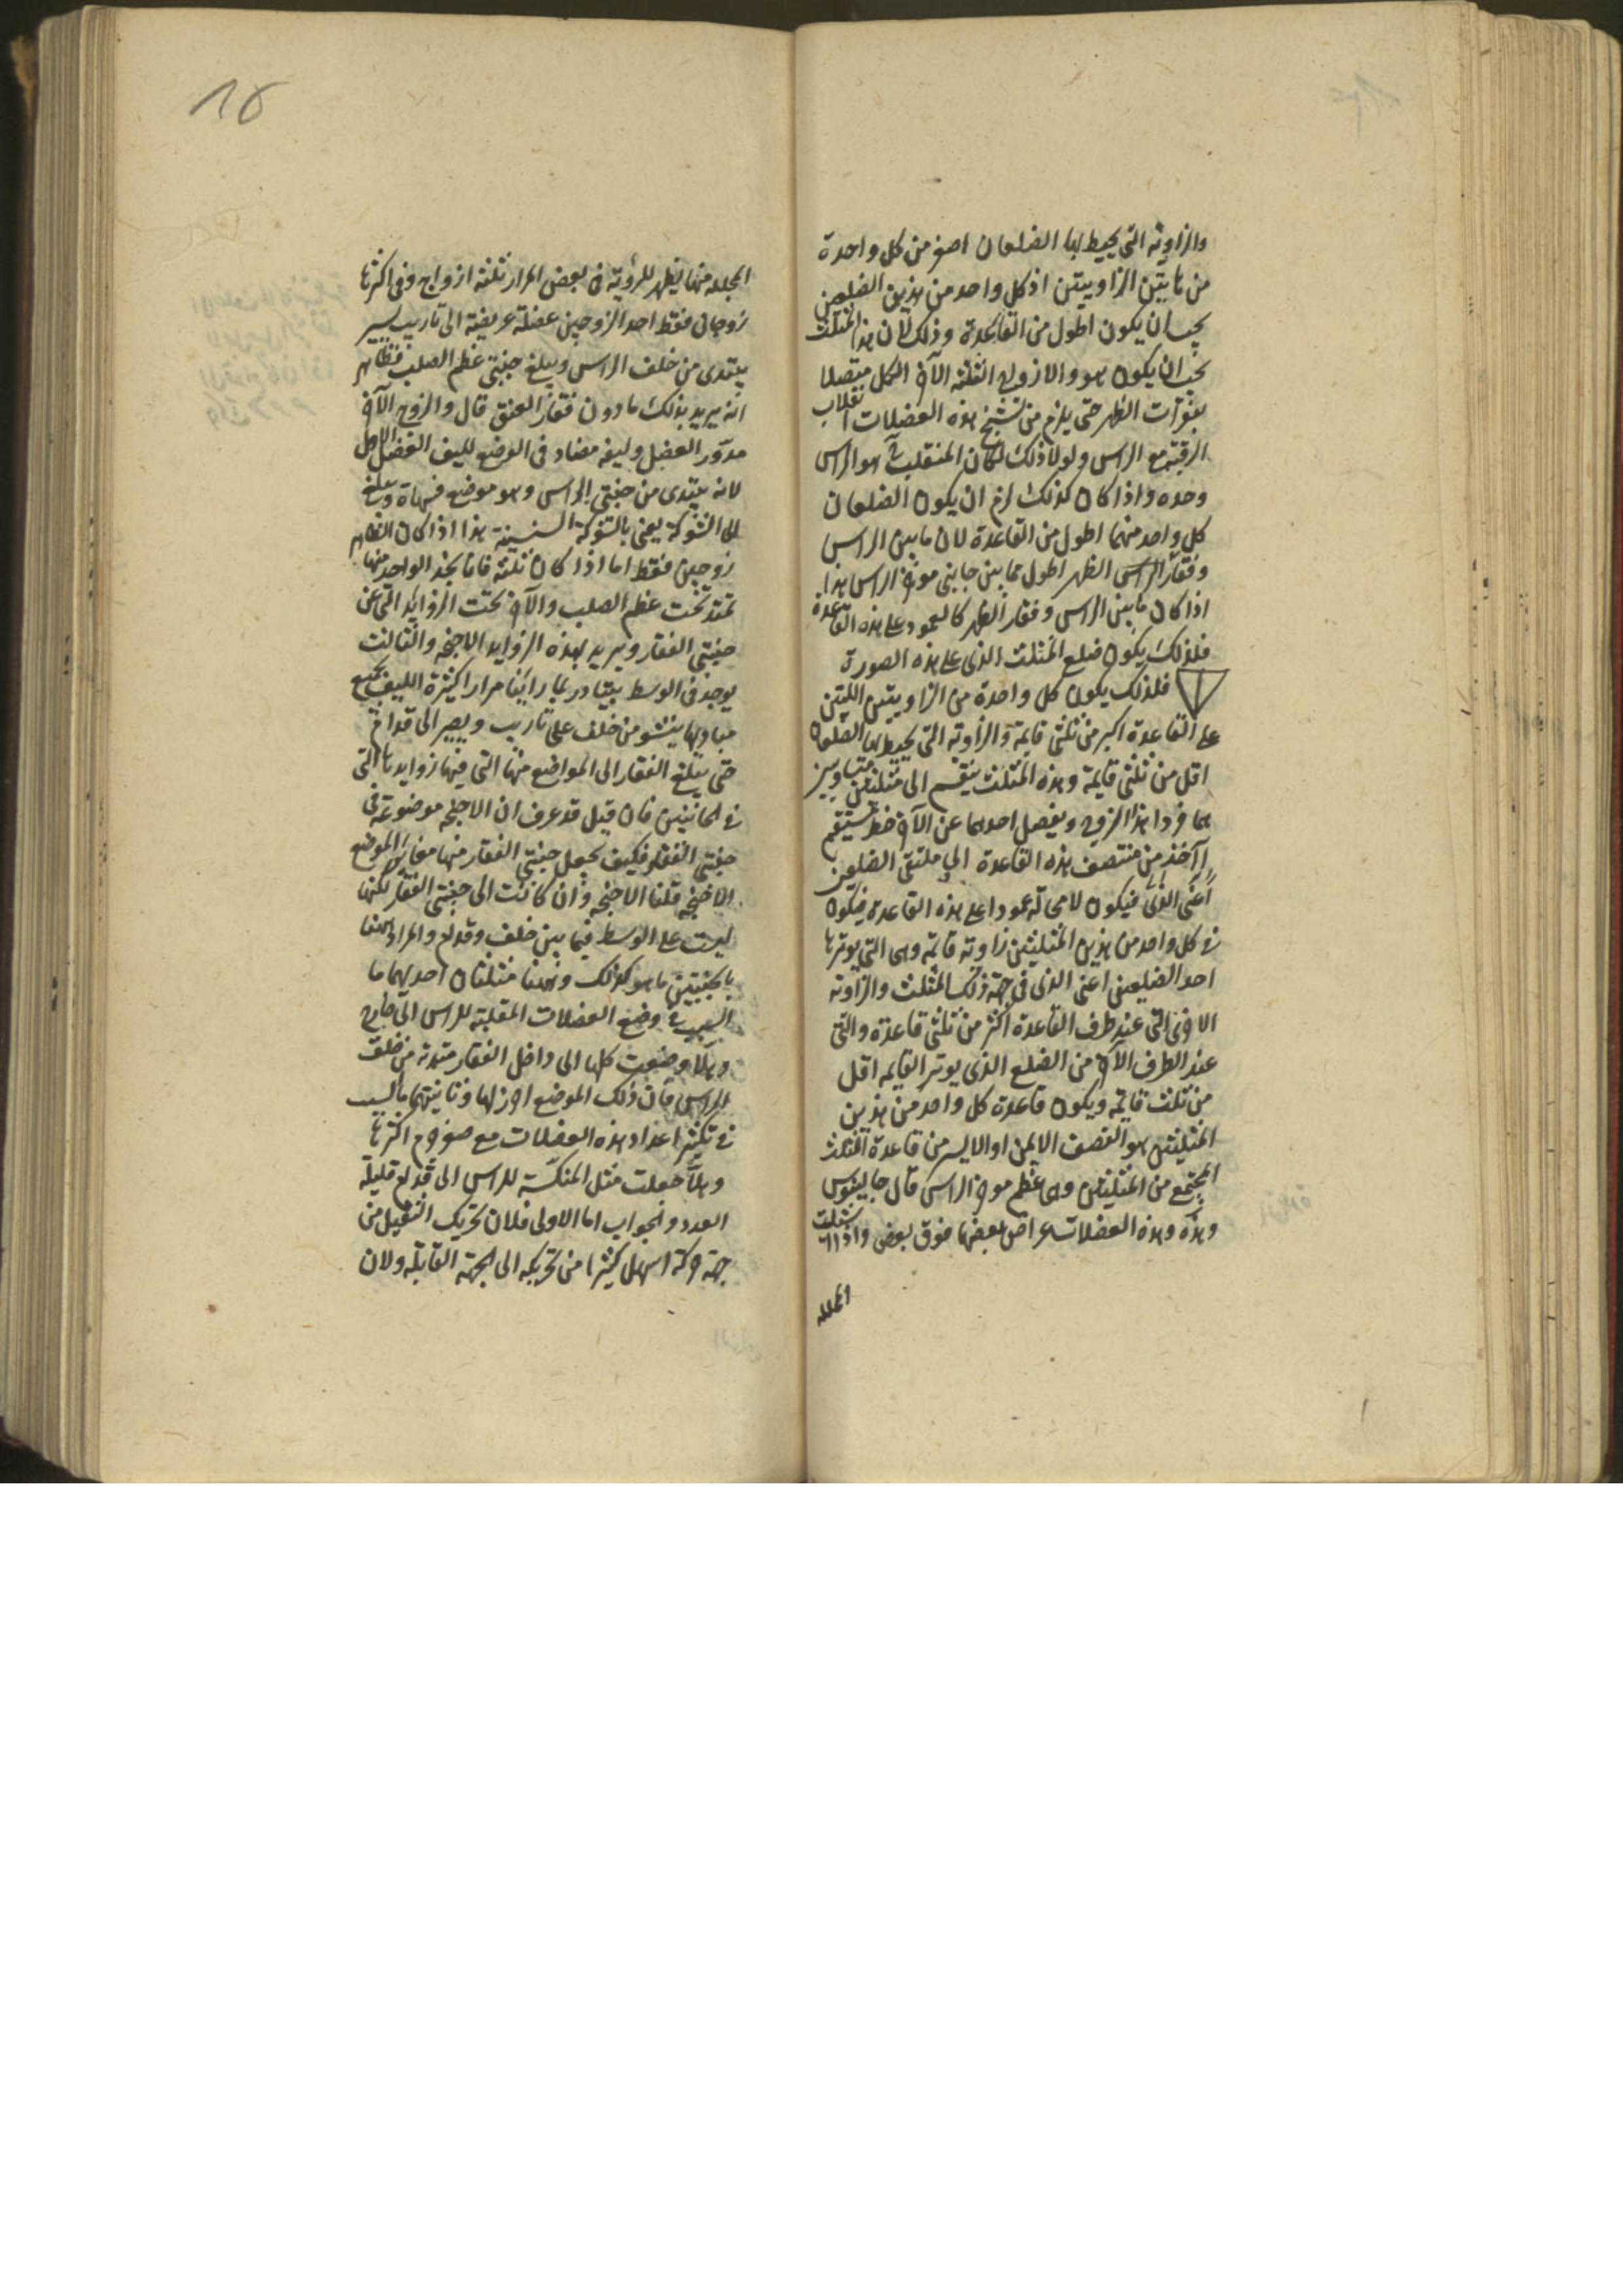 والزاوية التي يحيط بها الضلعان اصغر من كل واحدة
من هاتين الزاويتين اذ كل واحد من هذين الضلعين
يجب ان يكون اطول من القاعدة وذلك لان هذا المثلث
يجب ان يكون هو والازواج الثلثة الآخر الكل متصلا
بفقرات الظهر حتى يلزم من تشنج هذه العضلات انقلاب
الرقبة مع الراس ولولا ذلك لكان المنقلب هو الراس
وحده واذا كان كذلك لزم ان يكون الضلعان
كل واحد منهما اطول من القاعدة لان ما بين الراس
وفقار الظهر اطول مما بين جانبي موخر الراس هذا
اذا كان ما بين الراس وفقار الظهر كالعمود على هذه القاعدة
فلذلك يكون ضلع المثلث الذي على هذه الصورة
فلذلك يكون كل واحدة من الزاويتين اللتين
على القاعدة اكبر من ثلثي قايمة والزاوية التي يحيط بها الضلعان
اقل من ثلثي قايمة وهذه المثلث ينقسم الى مثلثين متساويين
هما فردا هذا الزوج ويفصل احدهما عن الآخر خط مستقيم
آخذ من منتصف هذه القاعدة الي ملتقى الضلعين
اعني الذي فيكون لا محالة عمودا على هذه القاعدة فيكون
في كل واحد من هذين المثلثين زاوية قايمة وهي التي يوترها
احد الضلعين اعني الذي في جهة ذلك المثلث والزاوية
الاخرى التي عند طرف القاعدة اكثر من ثلثي قاعدة والتي
عند الطرف الآخر من الضلع الذي يوتر القايمه اقل
من ثلث قايمة ويكون قاعدة كل واحد من هذين
المثلثين هو النصف الايمن او الايسر من قاعدة المثلث
المجتمع من المثلثين وهي عظم موخر الراس قال جالينوس
وهذه العضلات بعضها فوق بعض واذا
المجلله
15
المجلله منها يظهر للرؤية في بعض المرار ثلثة ازواج وفي اكثرها
زوجان فقط احد الزوجين عضلة عريضة الى تاريب يسير
يبتدى من خلف الراس ويبلغ جنبتي عظم الصلب فظاهر
انه يريد بذلك ما دون فقار العنق قال والزوج الآخر
مدور العضل وليفه مضاد في الوضع لليف العضل الاول
لانه يبتدى من جنبتي الراس وهو موضع ويبلغ
الى الشوكة يعني بالشوكة السنسنة هذا اذا كان الظاهر
زوجين فقط اما اذا كان ثلثة فانا نجد الواحد منها
تمتد تحت عظم الصلب والآخر تحت الزوايد التي عن
جنبتي الفقار ويريد بهذه الزوايد الاجنحة والثالث
يوجد في الوسط بما رايتا مرارا كثيرة الليف جميع
مباديها ينشو من خلف على تاريب ويصير الى قدام
حتى يبلغ الفقار الى المواضع منها التي فيها زوايدها التي
في الجانبين فان قيل قد عرف ان الاجنحة موضوعة في
جنبتي الفقار فكيف يجعل جنبتي الفقار منها مغاير الموضع
الاجنحة قلنا الاجنحة وان كانت الى جنبتي الفقار لكنها
ليست على الوسط فيما بين خلف وقدام والمراد ههنا
بالجنبتين ما هو كذلك وههنا احديهما ما
السبب في وضع العضلات المقلبة للراس الى خارج
وهلا وضعت كلها الى داخل الفقار متدة من خلف
الراس فان ذلك الموضع احرز لها وثانيتهما ما السبب
في تكثير اعداد هذه العضلات مع صغر اكثرها
وهلا جعلت مثل المنكسة للراس الى قدام قليلة
العدد والجواب اما الاولى فلان تحريك الثقيل من
جهة حركة اسهل كثيرا من تحريكه الى الجهة القابلة ولان